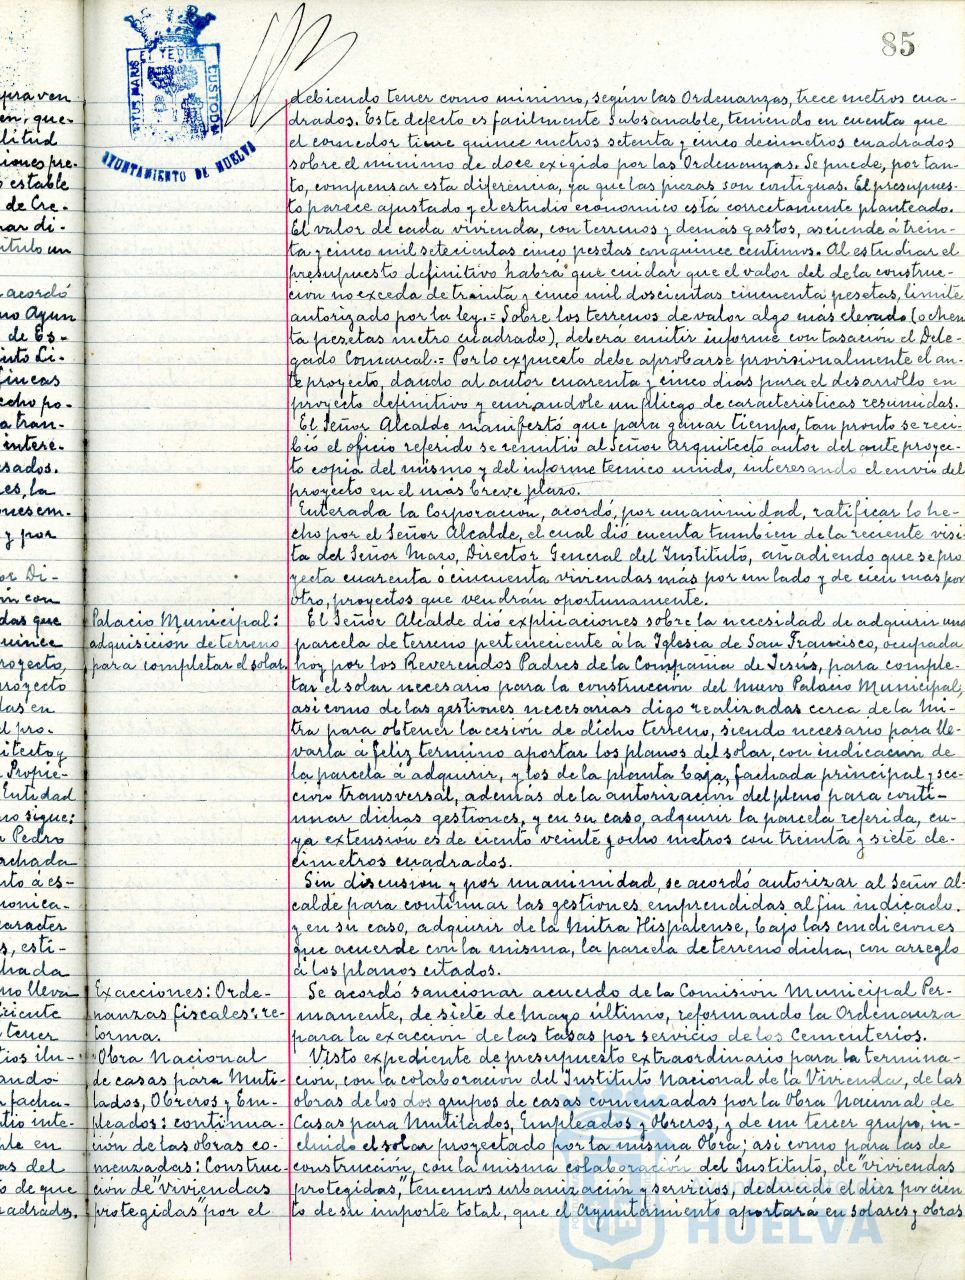 85
PORTUS MARIS ET TERRE CUSTODIA
AYUNTAMIENTO DE HUELVA
debiendo tener como minimo, según las Ordenanzas, trece metros cua-
drados. Este defecto es facilmente subsanable, teniendo en cuenta que
el comedor tiene quince metros setenta y cinco decimetros cuadrados
sobre el minimo de doce exigido por las Ordenanzas. Se puede, por tan-
to, compensar esta diferencia, ya que las piezas son contiguas. El presupues-
to parece ajustado y el estudio economico está correctamente planteado.
El valor de cada vivienda, con terrenos y demás gastos, asciende á trein-
ta y cinco mil setecientas cinco pesetas con quince centimos. Al estudiar el
presupuesto definitivo habrá que cuidar que el valor del de la construc-
cion no exceda de treinta y cinco mil doscientas cincuenta pesetas, limite
autorizado por la ley.= Sobre los terrenos de valor algo más elevado (ochen
ta pesetas metro cuadrado), deberá emitir informe con tasación el Dele-
gado Comarcal.= Por lo expuesto debe aprobarse provisionalmente el an-
te proyecto, dando al autor cuarenta y cinco dias para el desarrollo en
proyecto definitivo y enviandole un pliego de caracteristicas resumidas.
El Señor Alcalde manifestó que para ganar tiempo, tan pronto se reci-
bió el oficio referido se remitió al Señor Arquitecto autor del ante proyec-
to copia del mismo y del informe tecnico unido, interesando el envio del
proyecto en el más breve plazo.
Enterada la Corporación, acordó, por unanimidad, ratificar lo he-
cho por el Señor Alcalde, el cual dió cuenta tambien de la reciente visi
ta del Señor Mazo, Director General del Instituto, añadiendo que se pro
yecta cuarenta ó cincuenta viviendas más por un lado y de cien mas por
otro, proyectos que vendrán oportunamente.
Palacio Municipal:
adquisición de terreno
para completar el solar.
El Señor Alcalde dió explicaciones sobre la necesidad de adquirir una
parcela de terreno perteneciente á la Iglesia de San Francisco, ocupada
hoy por los Reverendos Padres de la Compañia de Jesús, para comple-
tar el solar necesario para la construcción del nuevo Palacio Municipal,
asi como de las gestiones necesarias digo realizadas cerca de la Mi-
tra para obtener la cesión de dicho terreno, siendo necesario para lle-
varla á feliz termino aportar los planos del solar, con indicación de
la parcela á adquirir, y los de la planta baja, fachada principal y sec-
ción transversal, además de la autorización del pleno para conti-
nuar dichas gestiones, y en su caso, adquirir la parcela referida, cu-
ya extensión es de ciento veinte y ocho metros con treinta y siete de-
cimetros cuadrados.
Sin discusión y por unanimidad, se acordó autorizar al Señor Al-
calde para continuar las gestiones emprendidas al fin indicado.
y en su caso, adquirir de la Mitra Hispalense, bajo las condiciones
que acuerde con la misma, la parcela de terreno dicha, con arreglo
á los planos citados.
Exacciones: Orde-
nanzas fiscales: re-
forma.
Se acordó sancionar acuerdo de la Comisión Municipal Per-
manente, de siete de mayo último, reformando la Ordenanza
para la exacción de las tasas por servicio de los Cementerios.
Obra Nacional
de casas para Muti-
lados, Obreros y Em-
pleados: continua-
ción de las obras co-
menzadas: Construc-
ción de "viviendas
protegidas" por el
Visto expediente de presupuesto extraordinario para la termina-
ción, con la colaboración del Instituto Nacional de la Vivienda, de las
obras de los dos grupos de casas comenzadas por la Obra Nacional de
Casas para Mutilados, Empleados y Obreros, y de un tercer grupo, in-
cluido el solar proyectado por la misma Obra; asi como para las de
construcción, con la misma colaboración del Instituto, de "viviendas
protegidas", terrenos urbanización y servicios, deducido el diez por cien
to de su importe total, que el Ayuntamiento aportara en solares y obras
Ayuntamiento de
HUELVA